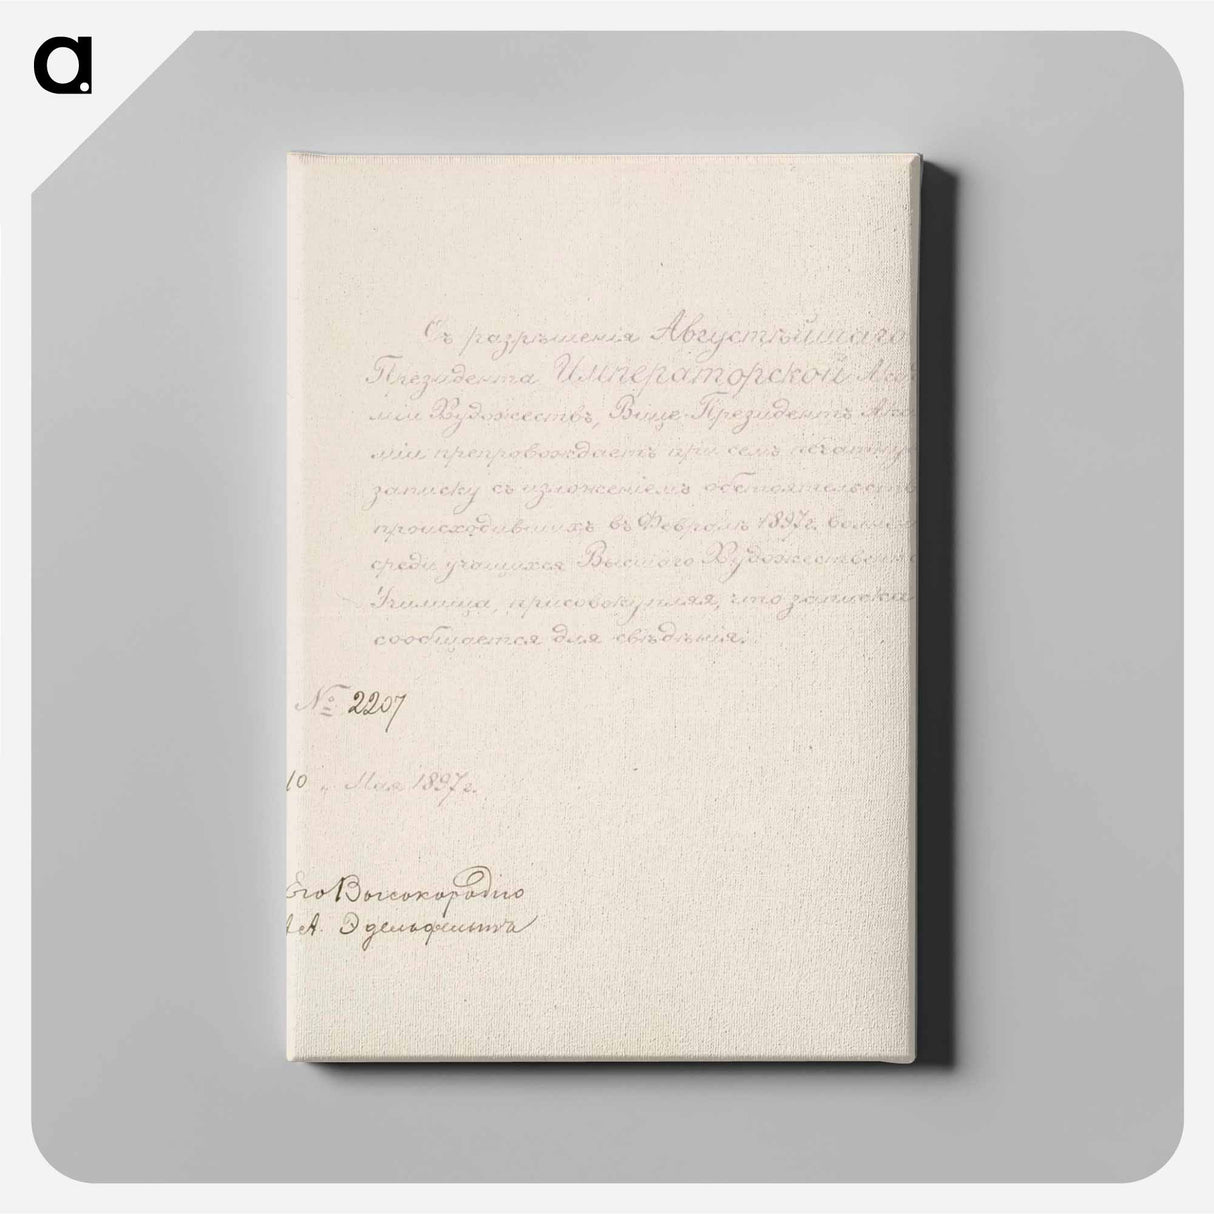 a.
Съ разрѣшенія Августѣйшаго
Президента Императорской Акаде
міи Художествъ, Вице-Президентъ Ака
міи препровождаетъ при семъ печатну
записку съ изложеніемъ обстоятельств
происходившихъ въ Февралѣ 1897 г. волне
среди учащихся Высшаго Художественна
Училища, присовокупляя, что записка
сообщается для свѣдѣнія.
№ 2207
10 „ Мая 1897 г.
Его Высокородію
А. Эдельфельтъ